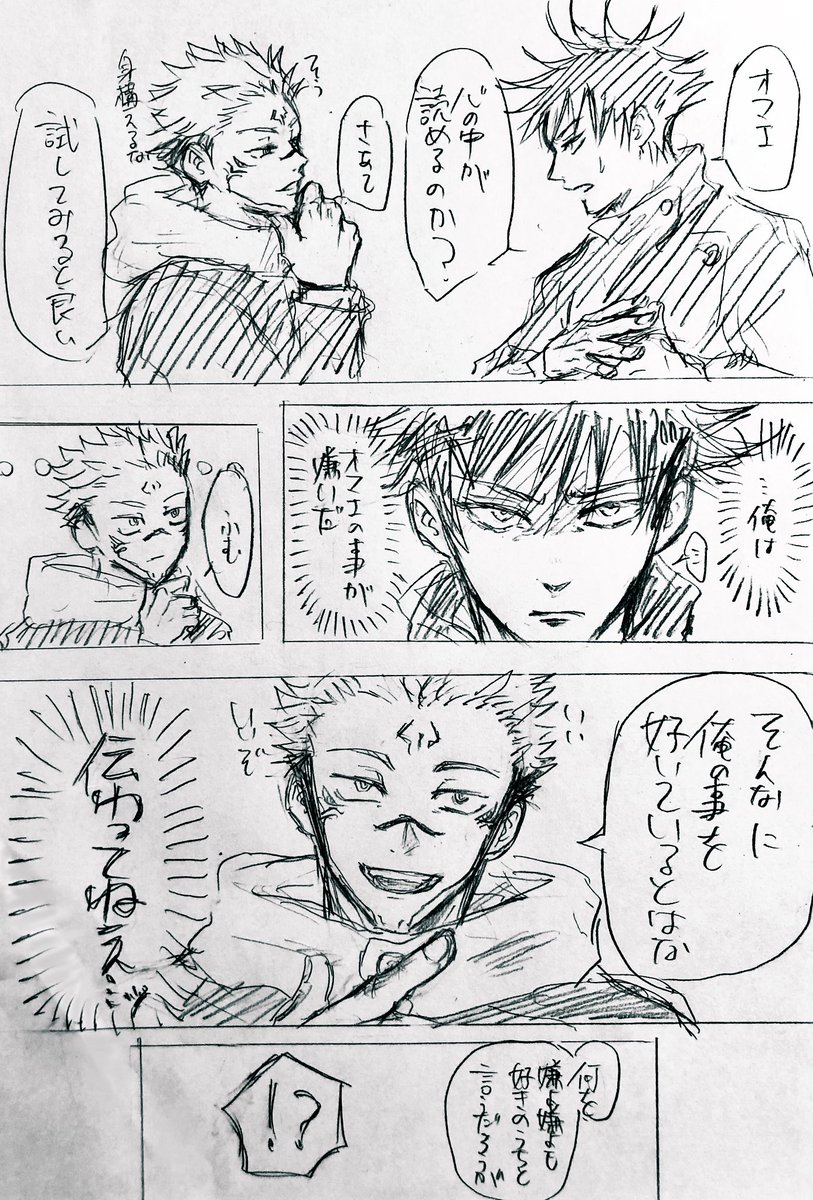 オマエ
心の中が
読めるのか?
さあて
そう
身構えるな
試してみると良い
…俺は
オマエの事が
嫌いだ
ふむ
そんなに
俺の事を
好いているとはな
いい
いぞ
伝わってねえ…
何を
嫌よ嫌よも
好きのうちと
言うだろうが
!?